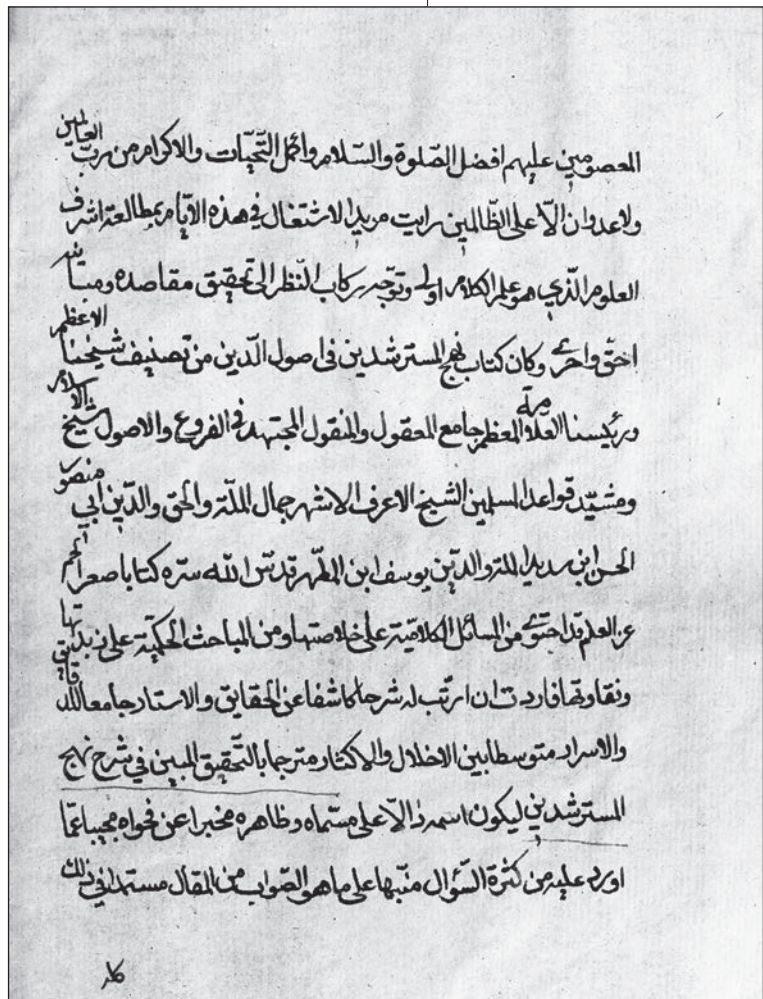 المعصومين عليهم افضل الصّلوة والسّلام واكمل التّحيّات والاكرام من ربّ العالمين
ولا عدوان الّا على الظّالمين رايت مريد الاشتغال في هذه الايّام بمطالعة اشرف
العلوم الّذي هو علم الكلام اولى وتوجّه ركاب النّظر الى تحقيق مقاصده ومسائله
احقّ واحرى وكان كتاب نهج المسترشدين في اصول الدّين من تصنيف شيخنا الاعظم
ورئيسنا العلّامة المعظم جامع المعقول والمنقول المجتهد في الفروع والاصول شيخ الاسلام
ومشيّد قواعد المسلمين الشيخ الاعرف الاشهر جمال الملّة والحق والدّين ابي منصور
الحسن ابن سديد الملة والدّين يوسف ابن المطّهر قدّس اللّه سرّه كتابا صغر الحجم
غر العلم قد احتوى من المسائل الكلاميّة على خلاصتها ومن المباحث الحكميّة على زبدتها
ونقاوتها فاردت ان ارتّب له شرحا كاشفا عن الحقايق والاستار جامعا للدقايق
والاسرار متوسطا بين الاخلال والاكثار مترجما بالتّحقيق المبين في شرح نهج
المسترشدين ليكون اسمه دالّا على مسّماه وظاهره مخبرا عن فحواه مجيبا عمّا
اورد عليه من كثرة السّؤال منّبها على ما هو الصّواب من المقال مستمدا في ذلك